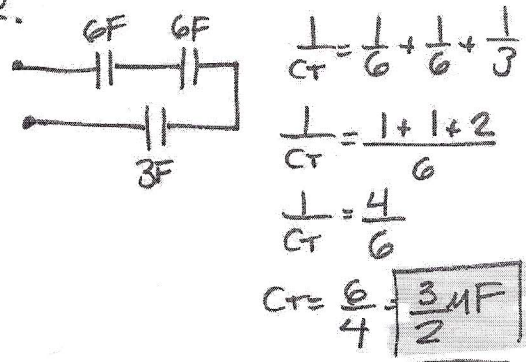 2.
6F 6F
3F
1/CT = 1/6 + 1/6 + 1/3
1/CT = 1+1+2/6
1/CT = 4/6
CT = 6/4 = 3/2 μF